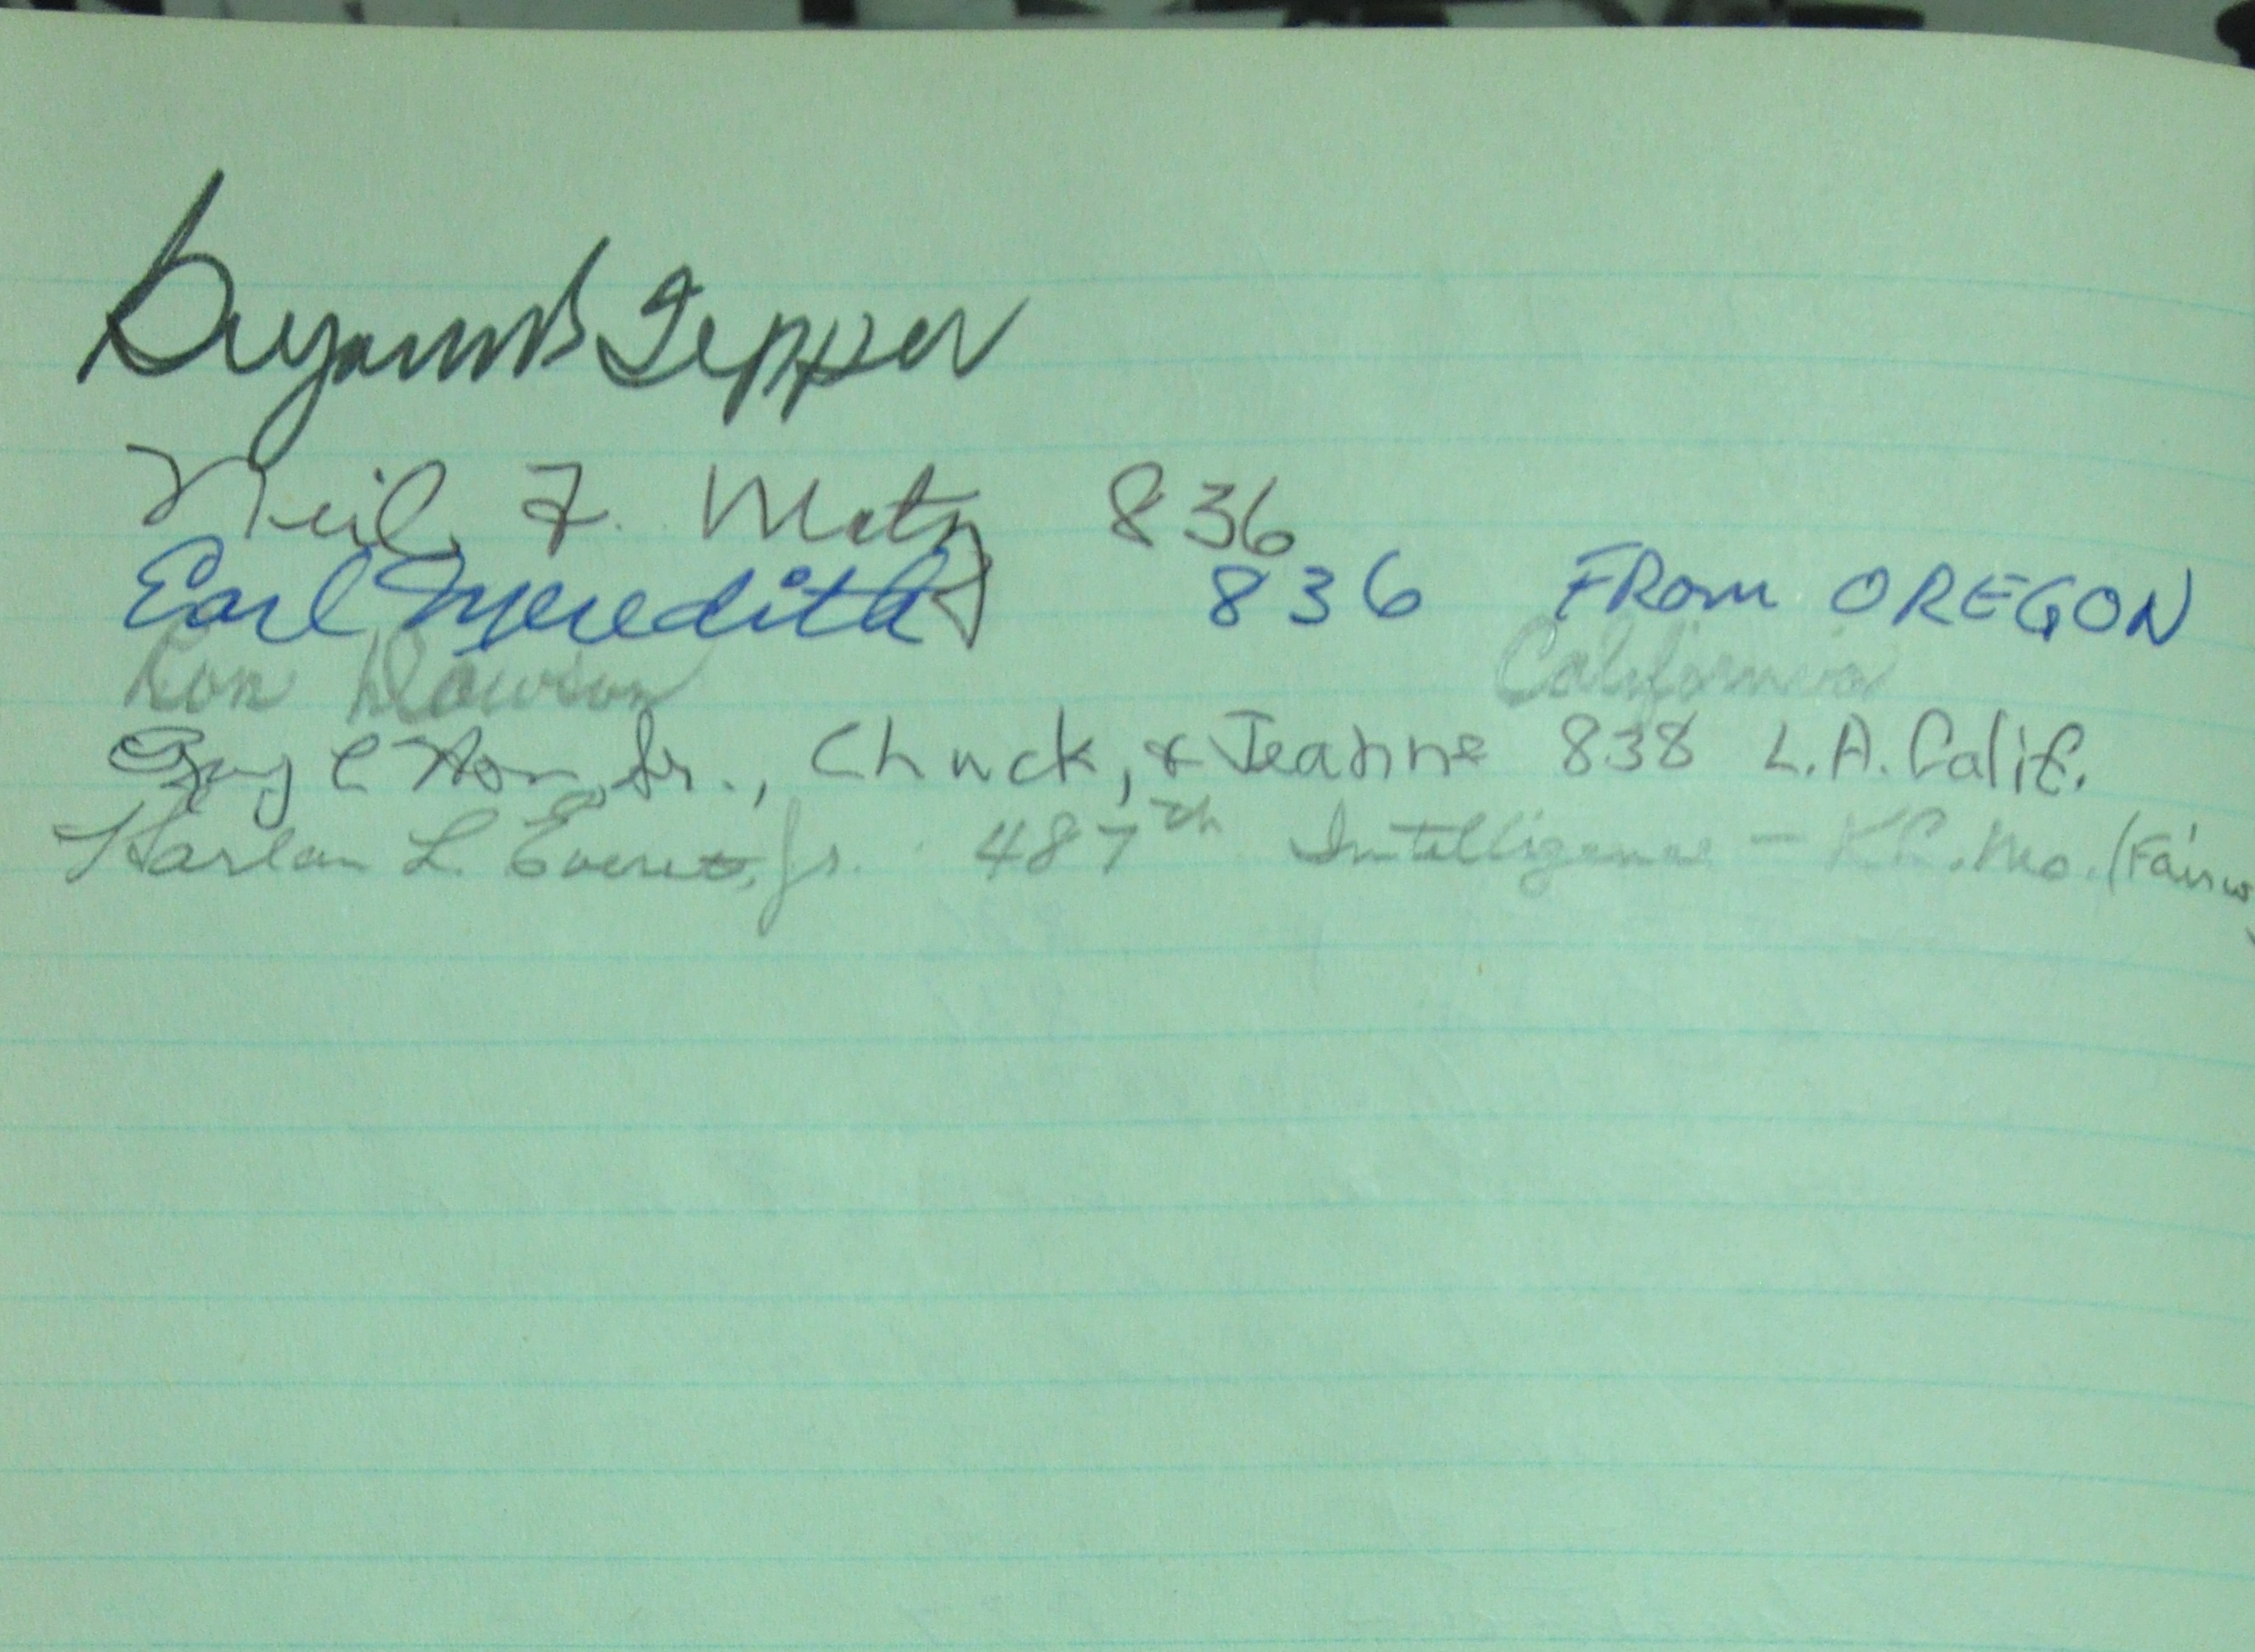 Tepper
Neil F. Metz 836
Earl Meredith 836 FROM OREGON
Ron Dawson California
Jr., Chuck, & Jeanne 838 L.A. Calif.
Harlan L. Everett, Jr. 487th Intelligence - K.C. Mo. (Fairw